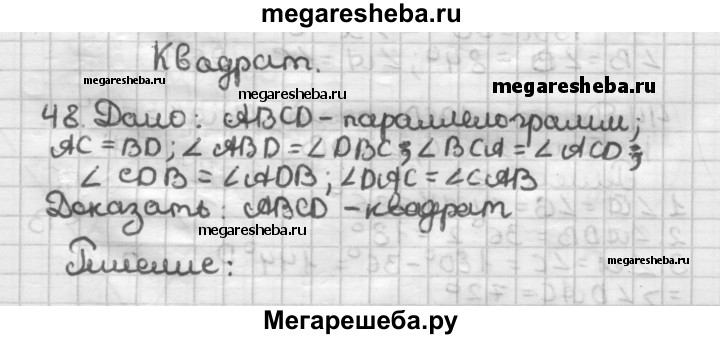 megaresheba.ru
Квадрат.
megaresheba.ru
megaresheba.ru
megaresheba.ru
48. Дано: ABCD - параллелограмм;
AC = BD; ∠ ABD = ∠ DBC; ∠ BCA = ∠ ACD;
∠ CDB = ∠ADB; ∠DAC = ∠CAB
Доказать: ABCD - квадрат
megaresheba.ru
Решение:
Мегарешеба.ру